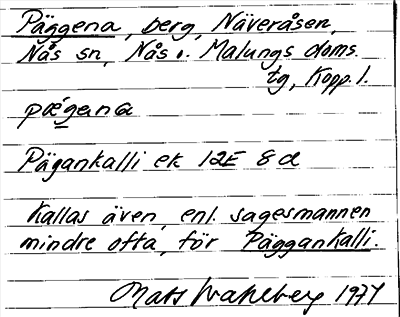 Päggena, berg, Näveråsen,
Nås sn, Nås o. Malungs doms.
tg, Kopp. l.
pǽgana
Pägankalli ek 12E 8d
Kallas även, enl. sagesmannen
mindre ofta, för Päggankalli.
Mats Wahlberg 1974